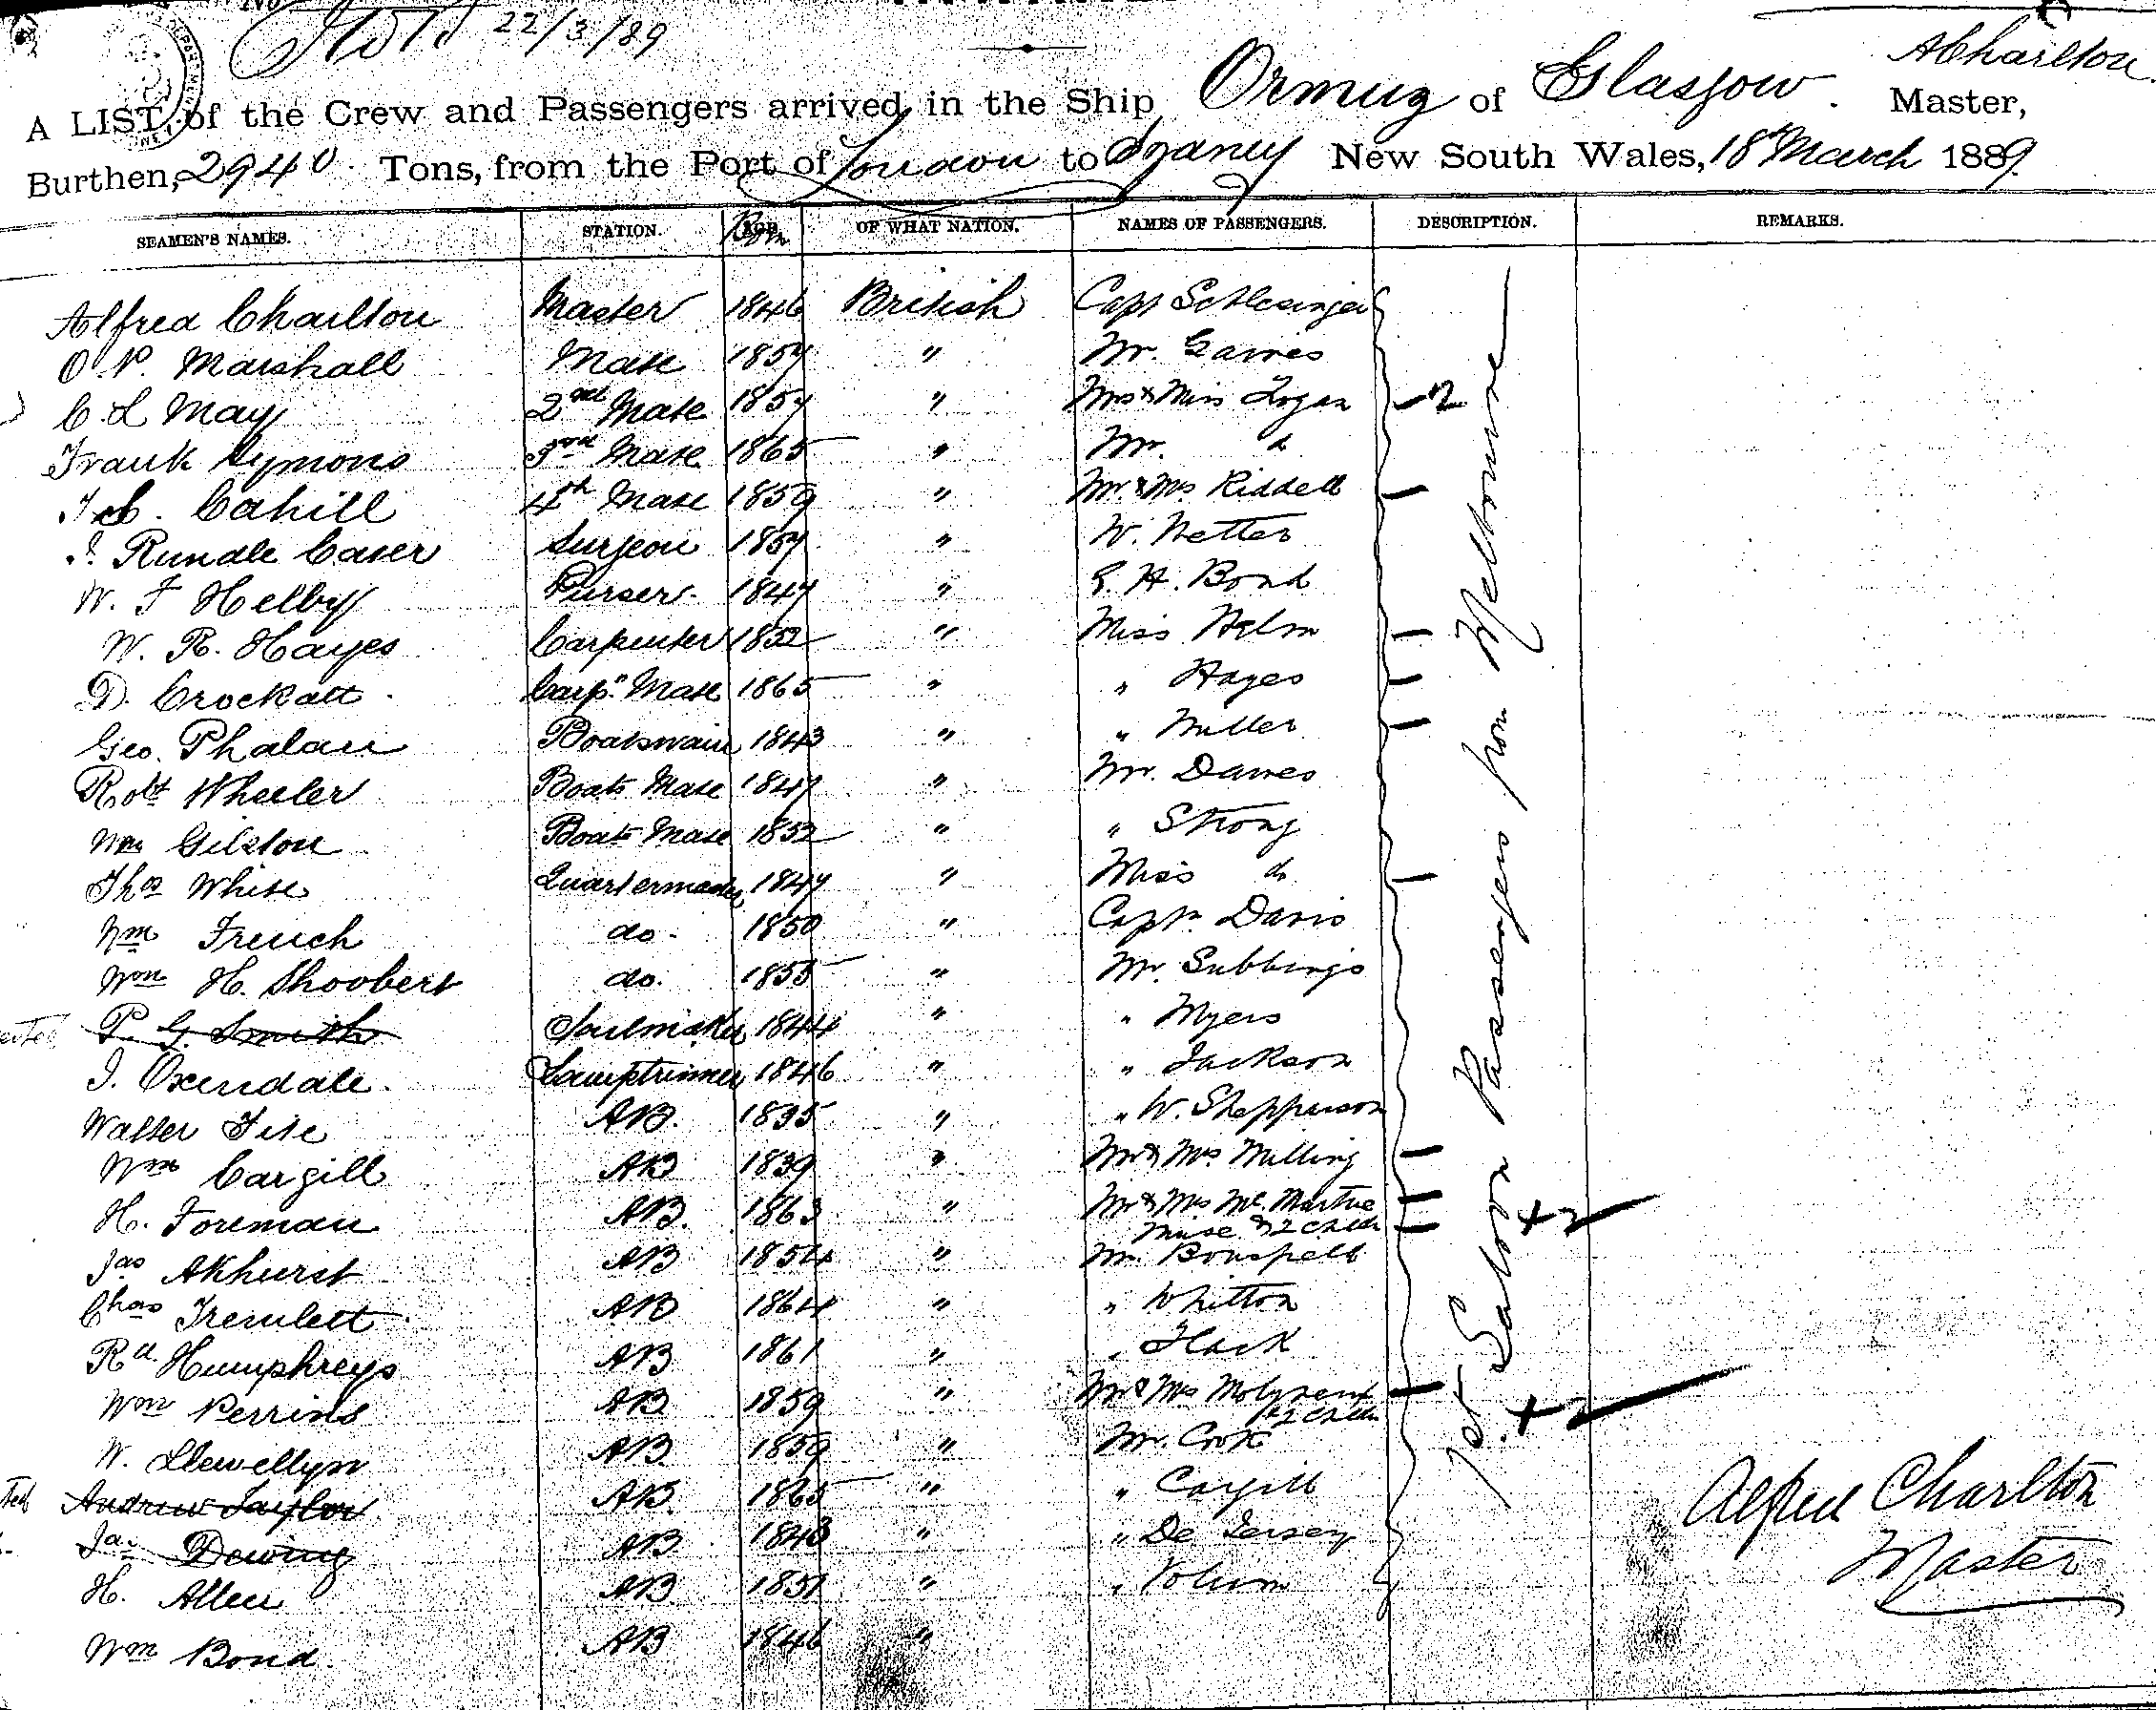 22/3/89
A Charlton
A LIST of the Crew and Passengers arrived in the Ship Ormuz of Glasgow. Master,
Burthen, 2940 Tons, from the Port of London to Sydney New South Wales, 18th March 1889.
SEAMEN'S NAMES. STATION. AGE. Born OF WHAT NATION. NAMES OF PASSENGERS. DESCRIPTION. REMARKS.
Alfred Charlton Master 1846 British Capt Schlesinger
O. P. Marshall Mate 1857 " Mr.
C. L May 2nd Mate 1857 " Mrs & Miss Logan 2
Frank Symons 3rd Mate 1865 " Mr. do
Cahill 4th Mate 1859 " Mr & Mrs Riddell
Rundle Surgeon 1857 " W. Netter
W. F Helby Purser 1847 " E. H. Bond
W. R. Hayes Carpenter 1852 " Miss Helm
D. Crockatt Carp.rs Mate 1865 " " Hayes
Geo. Phalan Boatswain 1843 " " Miller
Robt Wheeler Boats Mate 1847 " Mr. Dawes
Wm Gilston Boats Mate 1852 " " Strong
Thos White Quartermaster 1847 " Miss do
Wm French do. 1850 " Captn Davis
Wm H. Shoobert do. 1855 " Mr. Subbings
P. G. Smith Sailmaker 1844 " " Myers
J. Oxendale Lamptrimmer 1846 " " Jackson
Walter AB. 1835 " " W. Shepperson
Wm Cargill AB 1839 " Mr & Mrs Milling
H. Foreman AB. 1863 " Mr & Mrs Mc. Martrie
Nurse & 2 Chldn +2
Jas Akhurst AB 1854 " Mr. Bonspell
Chas Tremlett AB 1864 " " Whitton
Rd Humphreys AB 1861 " " Flack
Wm Perrins AB 1859 " Mr & Mrs
& 2 Chldn +2
W. Llewellyn AB 1859 " Mr. Cook
Andrew Taylor AB 1865 " " Cargill
Jas Dewing AB 1843 " " De Jersey
H. Allen AB 1851 " "
Wm Bond. AB 1846 "
1st Saloon Passengers from Melbourne
Alfred Charlton
Master